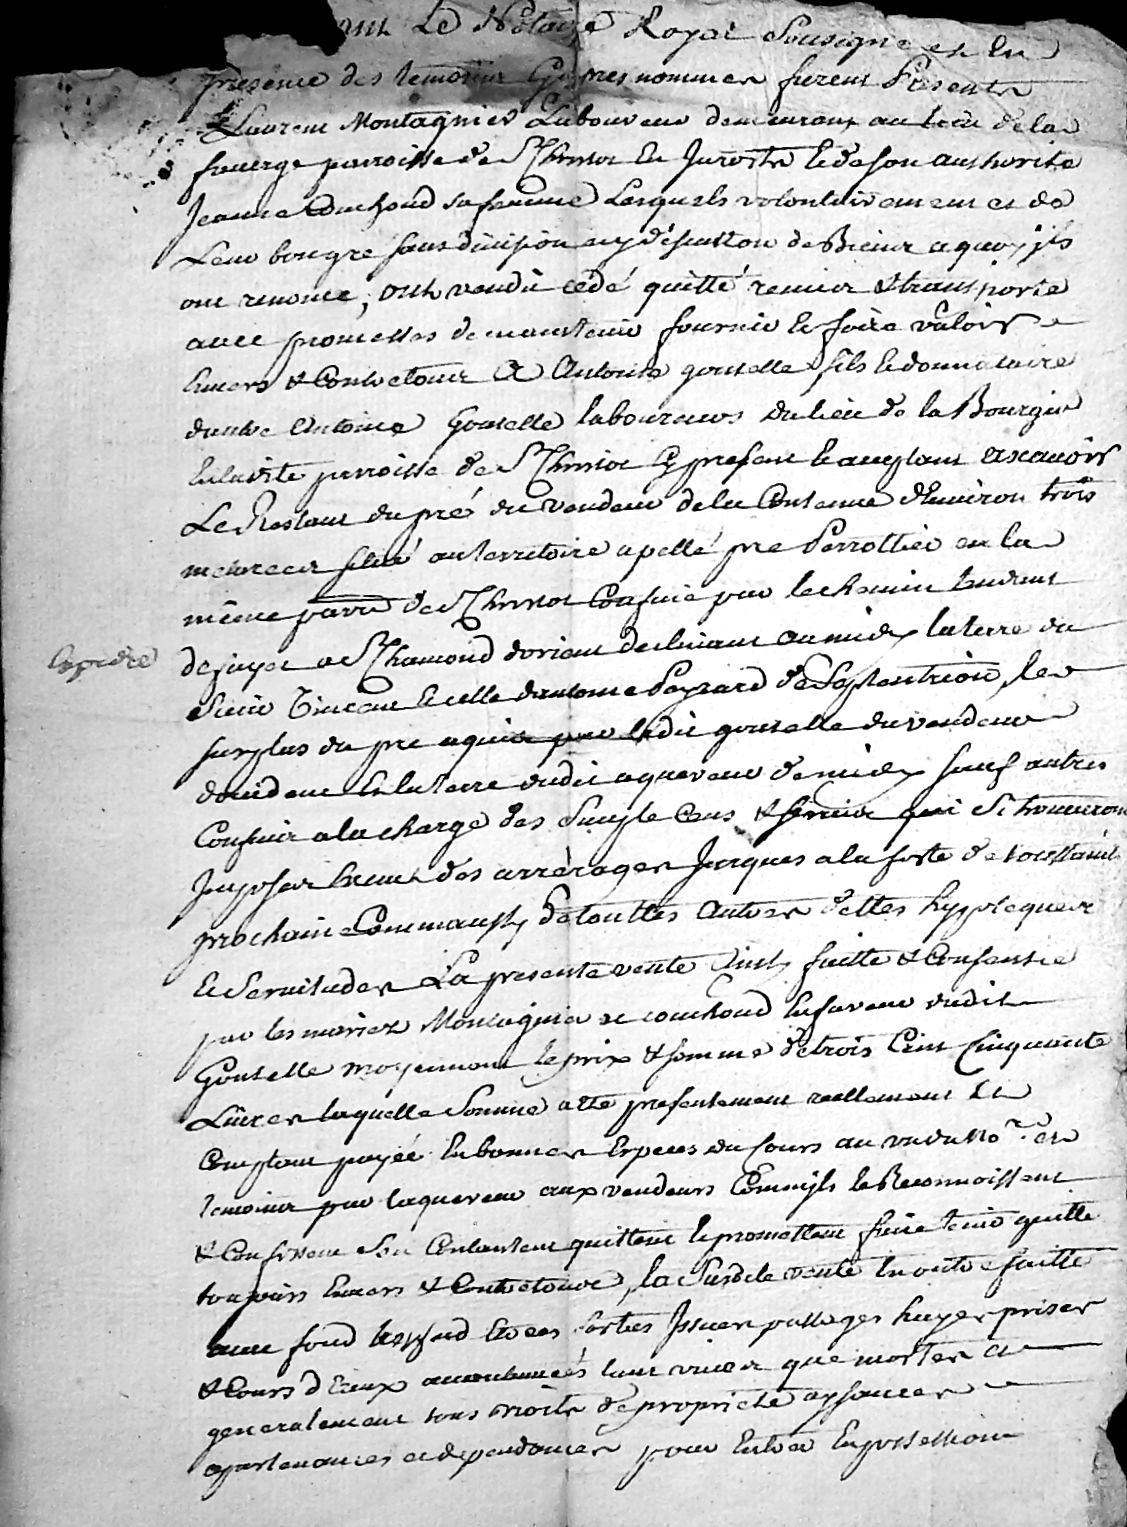 Le Notaire Royal Sousigné et En
presence des temoins Cy apres nommes furent Présents
Laurent Montagnier Laboureur demeurant au lieu de la
faverge parroisse de St Christot En Jarrests & de son authorité
Jeanne Couchoud sa femme Lesquels volontairement et de
Leur bon gré sans division ny discution de Biens a quoy ils
ont renoncé, ont vendu cédé quitté remis & transporté
avec promesses de maintenir fournir & faire valoir
Envers & Contre tous A Antoine goutelle fils & donnataire
d'autre Antoine Goutelle laboureur du lieu de la Bourgin
En la dite parroisse de St Christot Cy present & acceptant ascavoir
Le Restant du pré du vendeur de la Contenue d'Environ trois
metreces situé au territoire apellé pré Perrottier en la
même parre de St Christot Confiné par le chemin tendant
Expedié
de a St Chamond d'orient declinant au midy la terre du
Sieur & celle d'antoine Payrard de Septentrion, le
surplus du pré aquis par ledit goutelle du vendeur
d'occident & la terre dudit aquereur de midy sauf autres
Confins a la charge des Simple Cens & servis qui Si trouveront
Imposés Exempt des arrérages Jusques a la feste de toussaints
prochaine Comme aussy de touttes autres dettes hypoteques
& Servitudes La presente vente Ainsy faitte & Consentie
par les mariez Montagnier et couchoud En faveur dudit
Goutelle moyennant le prix & somme de trois Cent Cinquante
Livres laquelle Somme a été presentement reellement Et
Comptant payée En bonnes Especes du Cours au vu du No.re et
temoins par laquereur aux vendeurs Comm'ils le Reconnoissent
& Confessent S'en Contantent quittent & promettent faire tenir quitte
toujours Envers & Contre tous, la Susdite vente En outre faitte
avec fond tresfond Entrées sorties Issues passages hayes prises
& Cours d'Eaux accoutumés tant vives que mortes et
generalement tous droits de proprieté aysances
apartenances et dependances pour Entrer En possession